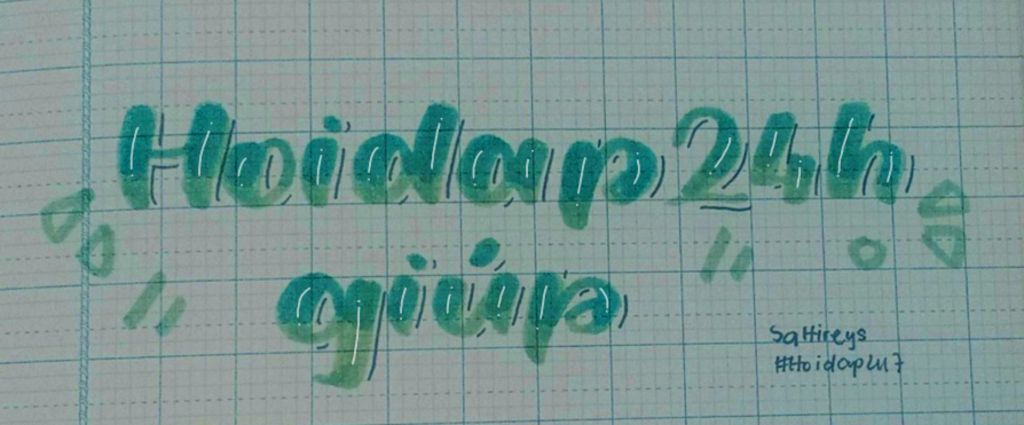 Hoidap 24h
giúp
Sattireys
#Hoidap247